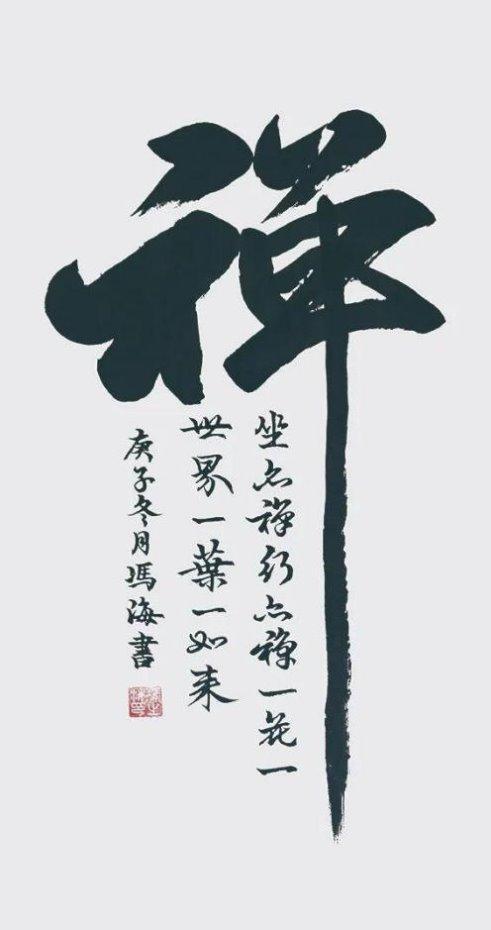 禅
坐亦禅行亦禅一花一
世界一葉一如来
庚子冬月馮海書